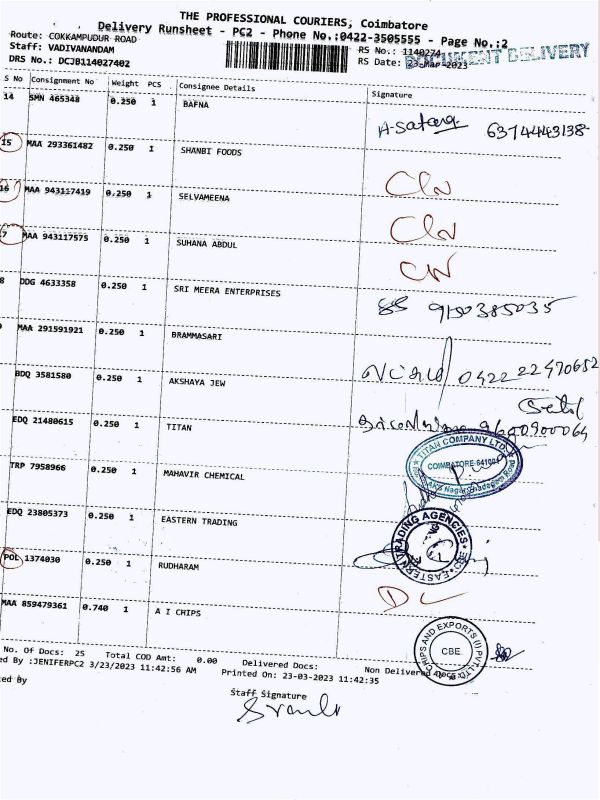 THE PROFESSIONAL COURIERS, Coimbatore
Delivery Runsheet - PC2 - Phone No.:0422-3505555 - Page No.:2
Route: COKKAMPUDUR ROAD
Staff: VADIVANANDAM
RS No.: 1140274
DOCUMENT DELIVERY
DRS No.: DCJB114027402
RS Date: 23-Mar-2023
S No Consignment No Weight PCS Consignee Details Signature
14 SMN 465348 0.250 1 BAFNA
6374443138
15 MAA 293361482 0.250 1 SHANBI FOODS
16 MAA 943117419 0.250 1 SELVAMEENA
7 MAA 943117575 0.250 1 SUHANA ABDUL
8 DDG 4633358 0.250 1 SRI MEERA ENTERPRISES
9150385035
MAA 291591921 0.250 1 BRAMMASARI
0422 22470652
BDQ 3581580 0.250 1 AKSHAYA JEW
9600900064
EDQ 21480615 0.250 1 TITAN
TITAN COMPANY LTD.
COIMBATORE-641001
TRP 7958966 0.250 1 MAHAVIR CHEMICAL
EDQ 23805373 0.250 1 EASTERN TRADING
EASTERN TRADING AGENCIES CBE
POL 1374030 0.250 1 RUDHARAM
DL
MAA 859479361 0.740 1 A I CHIPS
CHIPS AND EXPORTS (I) PVT.LTD.
CBE.
No. Of Docs: 25 Total COD Amt: 0.00 Delivered Docs: Non Delivered Docs:
ed By :JENIFERPC2 3/23/2023 11:42:56 AM Printed On: 23-03-2023 11:42:35
ted By
Staff Signature